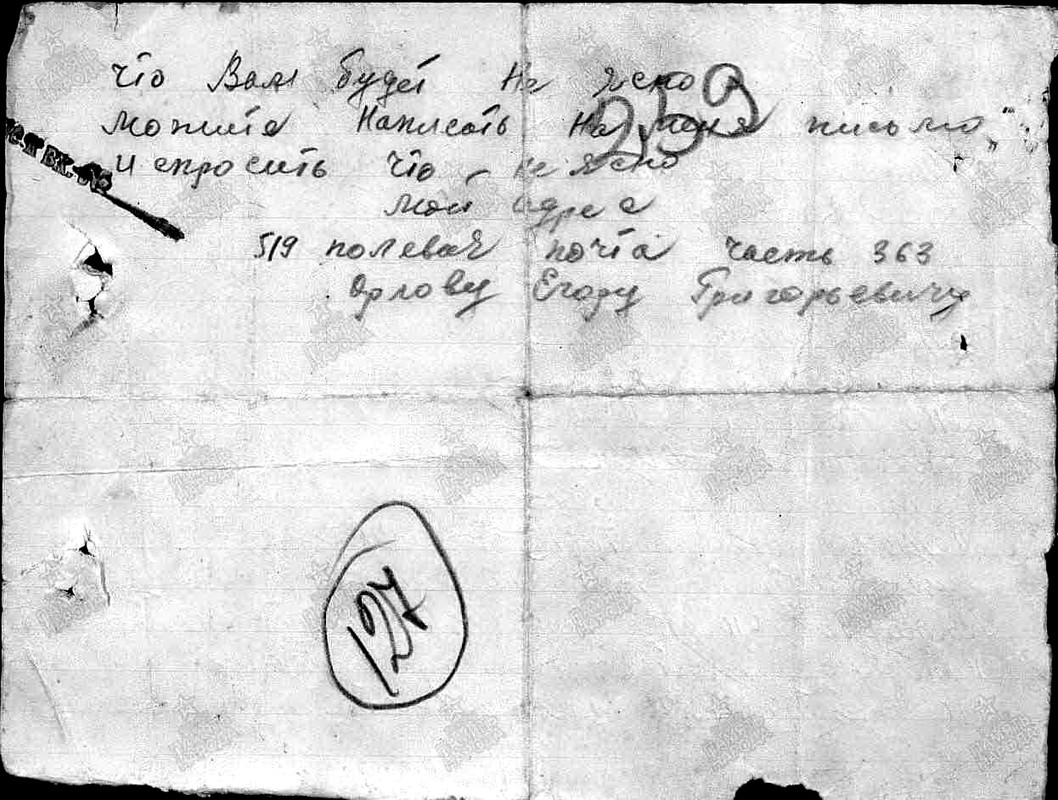 что Вам будет не ясно
можите написать на меня письмо
и спросить что не ясно
мой адрес
519 полевая почта часть 363
Орлову Егору Григорьевичу
259
127